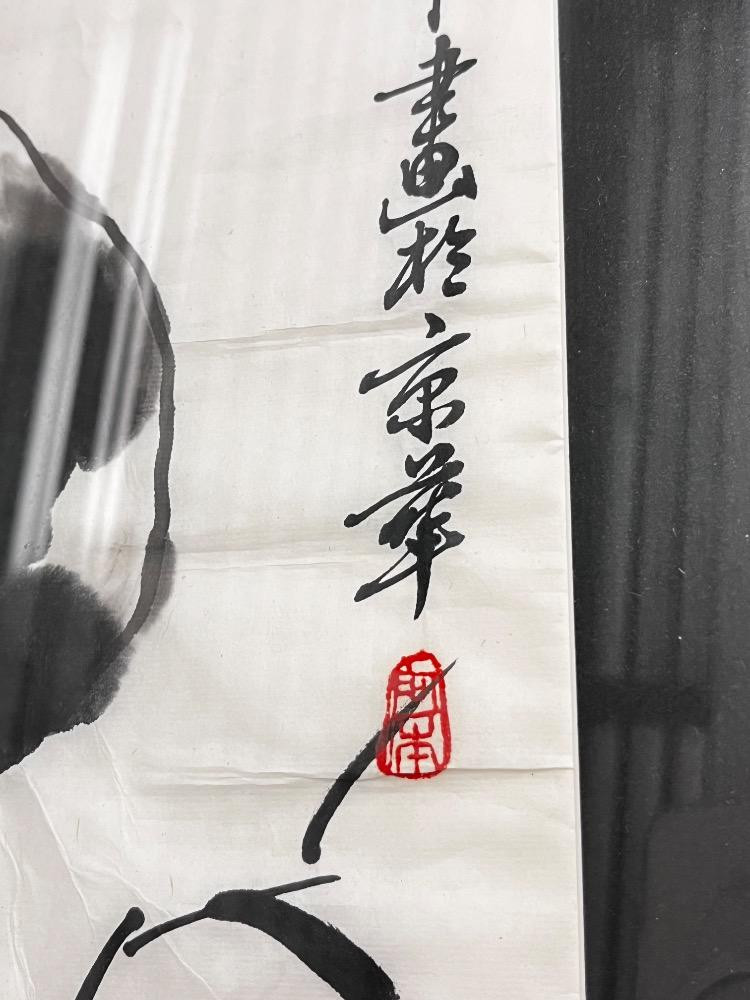 畫於京華